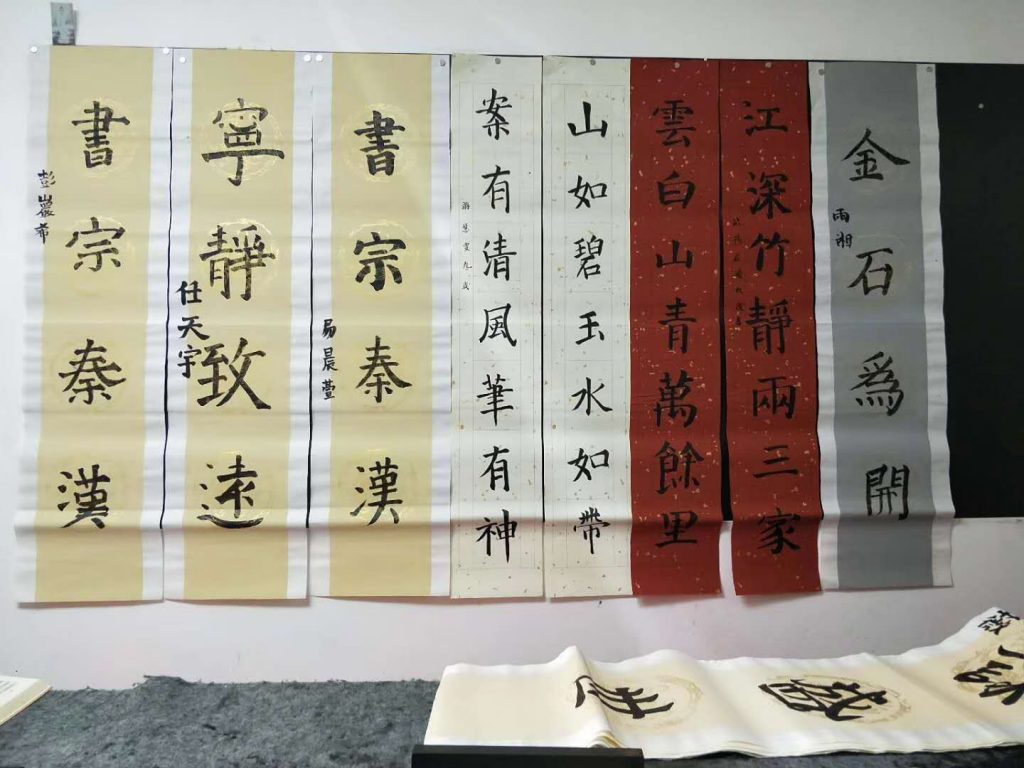 金石為開
雨湘
江深竹靜兩三家
雲白山青萬餘里
山如碧玉水如帶
案有清風筆有神
九歲
書宗秦漢
易晨萱
寧靜致遠
任天宇
書宗秦漢
彭巖希